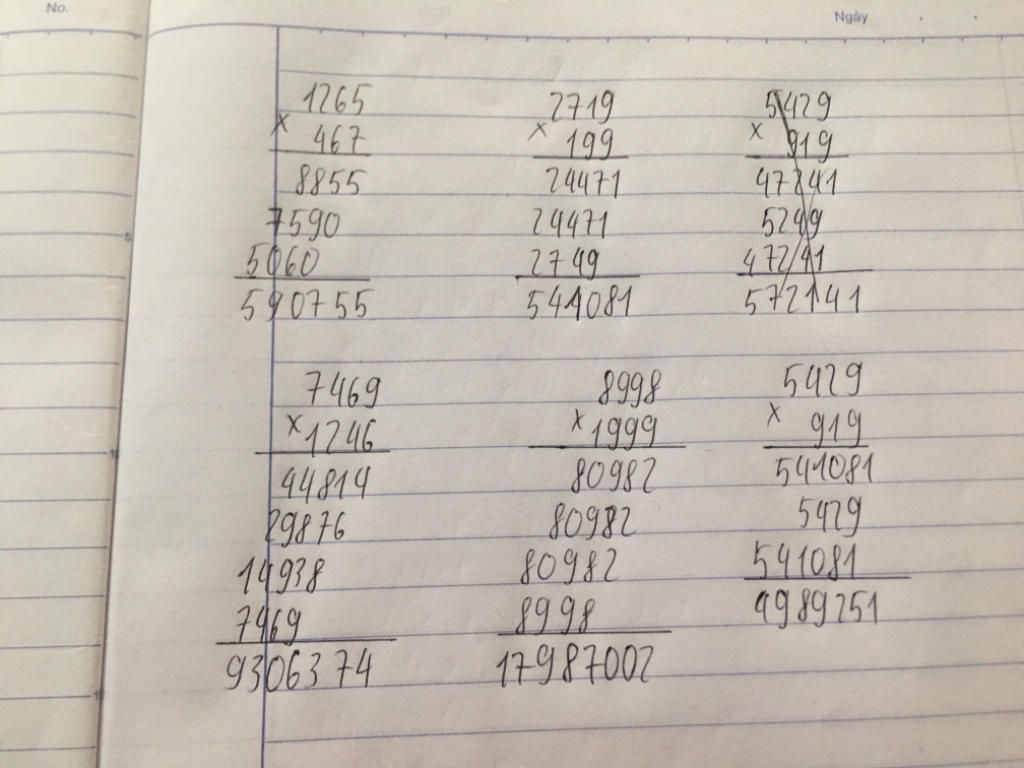 No.
Ngày
1265
× 467
8855
7590
5060
590755
2719
× 199
24471
24471
2749
541081
5429
× 919
47241
5249
47241
572141
7469
×1246
44814
29876
14938
7469
9306374
8998
×1999
80982
80982
80982
8998
17987002
5429
× 919
541081
5429
541081
4989251